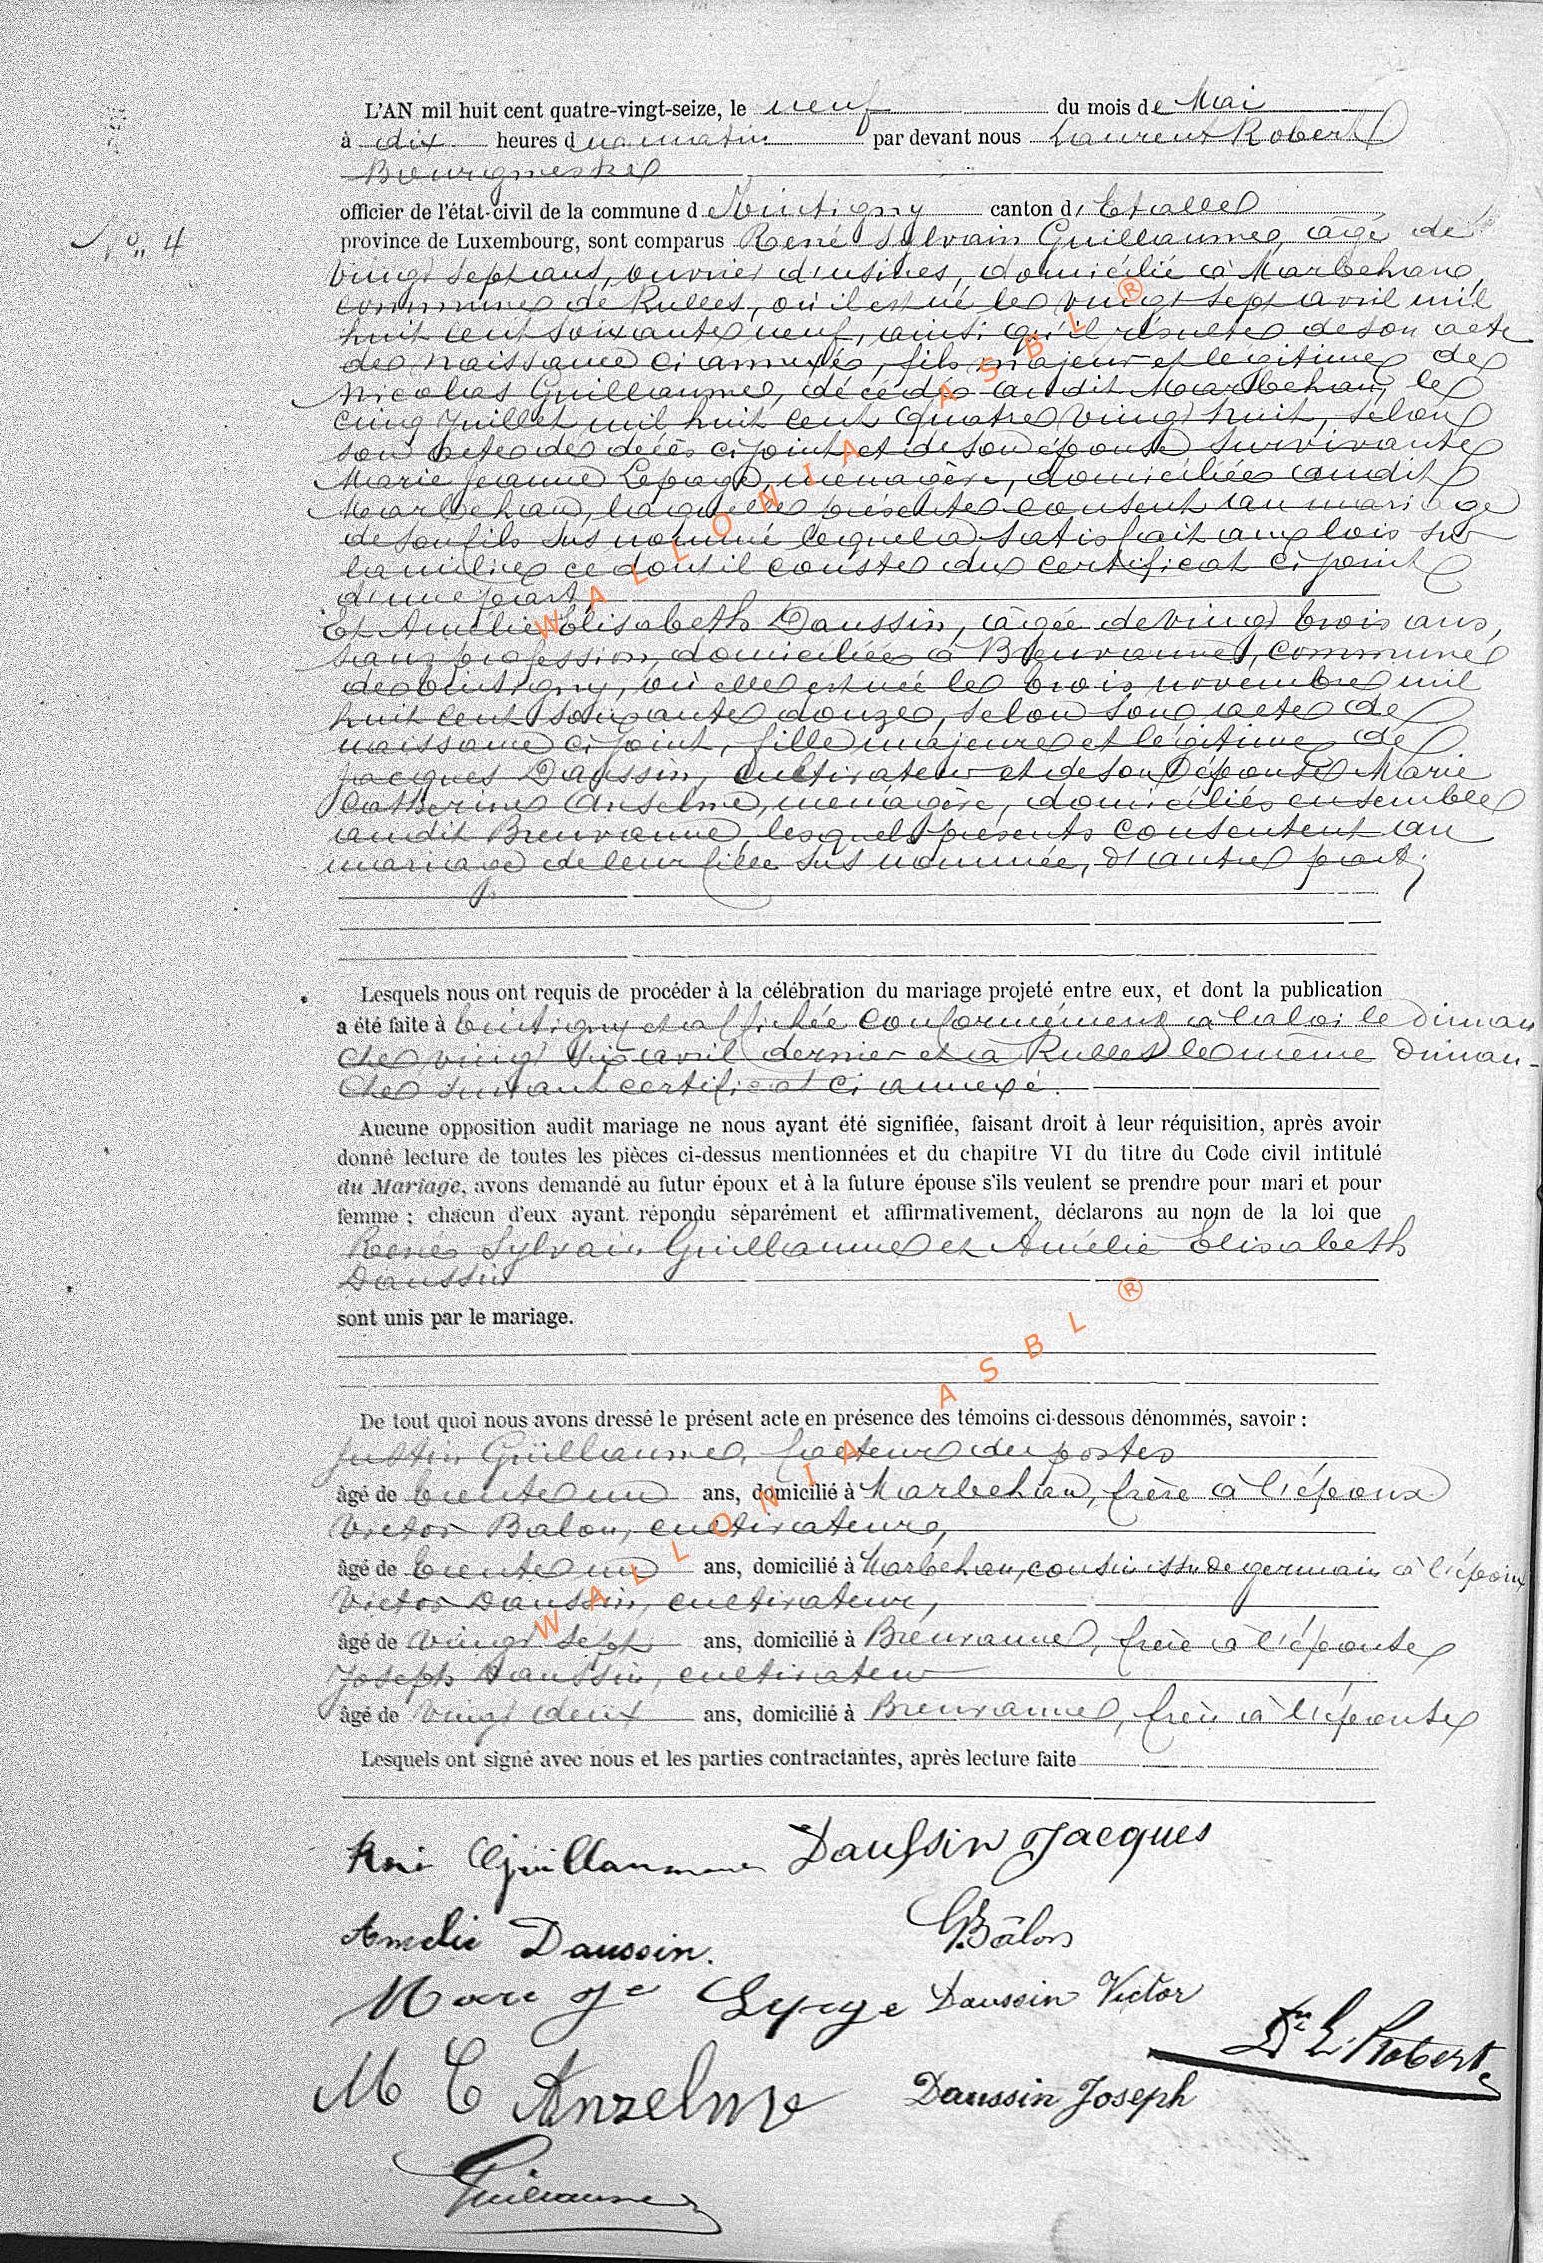 L'AN mil huit cent quatre-vingt-seize, le neuf du mois de Mai
à dix heures du matin par devant nous Laurent Robert
Bourgmestre
officier de l'état-civil de la commune d Tintigny canton d'Etalle
N° 4
province de Luxembourg, sont comparus René Sylvain Guillaume, âgé de
vingt sept ans, ouvrier d'usines, domicilié à Marbehan,
commune de Rulles, où il est né le vingt sept avril mil
huit cent soixante neuf, ainsi qu'il résulte de son acte
de naissance ci annexé, fils majeur et légitime de
Nicolas Guillaume, décédé audit Marbehan, le
cinq Juillet mil huit cent quatre vingt huit, selon
son acte de décès ci joint et de son épouse survivante
Marie Jeanne Lepage, ménagère, domiciliée audit
Marbehan, laquelle présente consent au mariage
de son fils sus nommé lequel a satisfait aux lois sur
la milice ce dont il conste du certificat ci joint
d'une part,
Et Amélie Elisabeth Daussin, âgée de vingt trois ans,
sans profession, domiciliée à Breuvanne, commune
de Tintigny, où elle est née le trois novembre mil
huit cent soixante douze, selon son acte de
naissance ci joint, fille majeure et légitime de
Jacques Daussin, cultivateur et de son épouse Marie
Catherine Anselme, ménagère, domiciliés ensemble
audit Breuvanne, lesquels présents consentent au
mariage de leur fille sus nommée, d'autre part;
Lesquels nous ont requis de procéder à la célébration du mariage projeté entre eux, et dont la publication
a été faite à Tintigny et affichée conformément à la loi le diman
che vingt six avril dernier et à Rulles le même diman-
che suivant certificat ci annexé.
Aucune opposition audit mariage ne nous ayant été signifiée, faisant droit à leur réquisition, après avoir
donné lecture de toutes les pièces ci-dessus mentionnées et du chapitre VI du titre du Code civil intitulé
du Mariage, avons demandé au futur époux et à la future épouse s'ils veulent se prendre pour mari et pour
femme ; chacun d'eux ayant répondu séparément et affirmativement, déclarons au nom de la loi que
René Sylvain Guillaume et Amélie Elisabeth
Daussin
sont unis par le mariage.
De tout quoi nous avons dressé le présent acte en présence des témoins ci-dessous dénommés, savoir :
Justin Guillaume, facteur des postes
âgé de trente un ans, domicilié à Marbehan, frère à l'époux
Victor Balon, cultivateur,
âgé de trente un ans, domicilié à Marbehan, cousin issu de germain à l'époux
Victor Daussin, cultivateur,
âgé de vingt sept ans, domicilié à Breuvanne, frère à l'épouse
Joseph Daussin, cultivateur
âgé de vingt deux ans, domicilié à Breuvanne, frère à l'épouse
Lesquels ont signé avec nous et les parties contractantes, après lecture faite
René Guillaume Daussin Jacques
Amelie Daussin. V. Bâlon
Marie Je Lepage Daussin Victor
Dr L. Robert
M C Anzelme Daussin Joseph
Guillaume
WALLONIA ASBL ®
WALLONIA ASBL ®